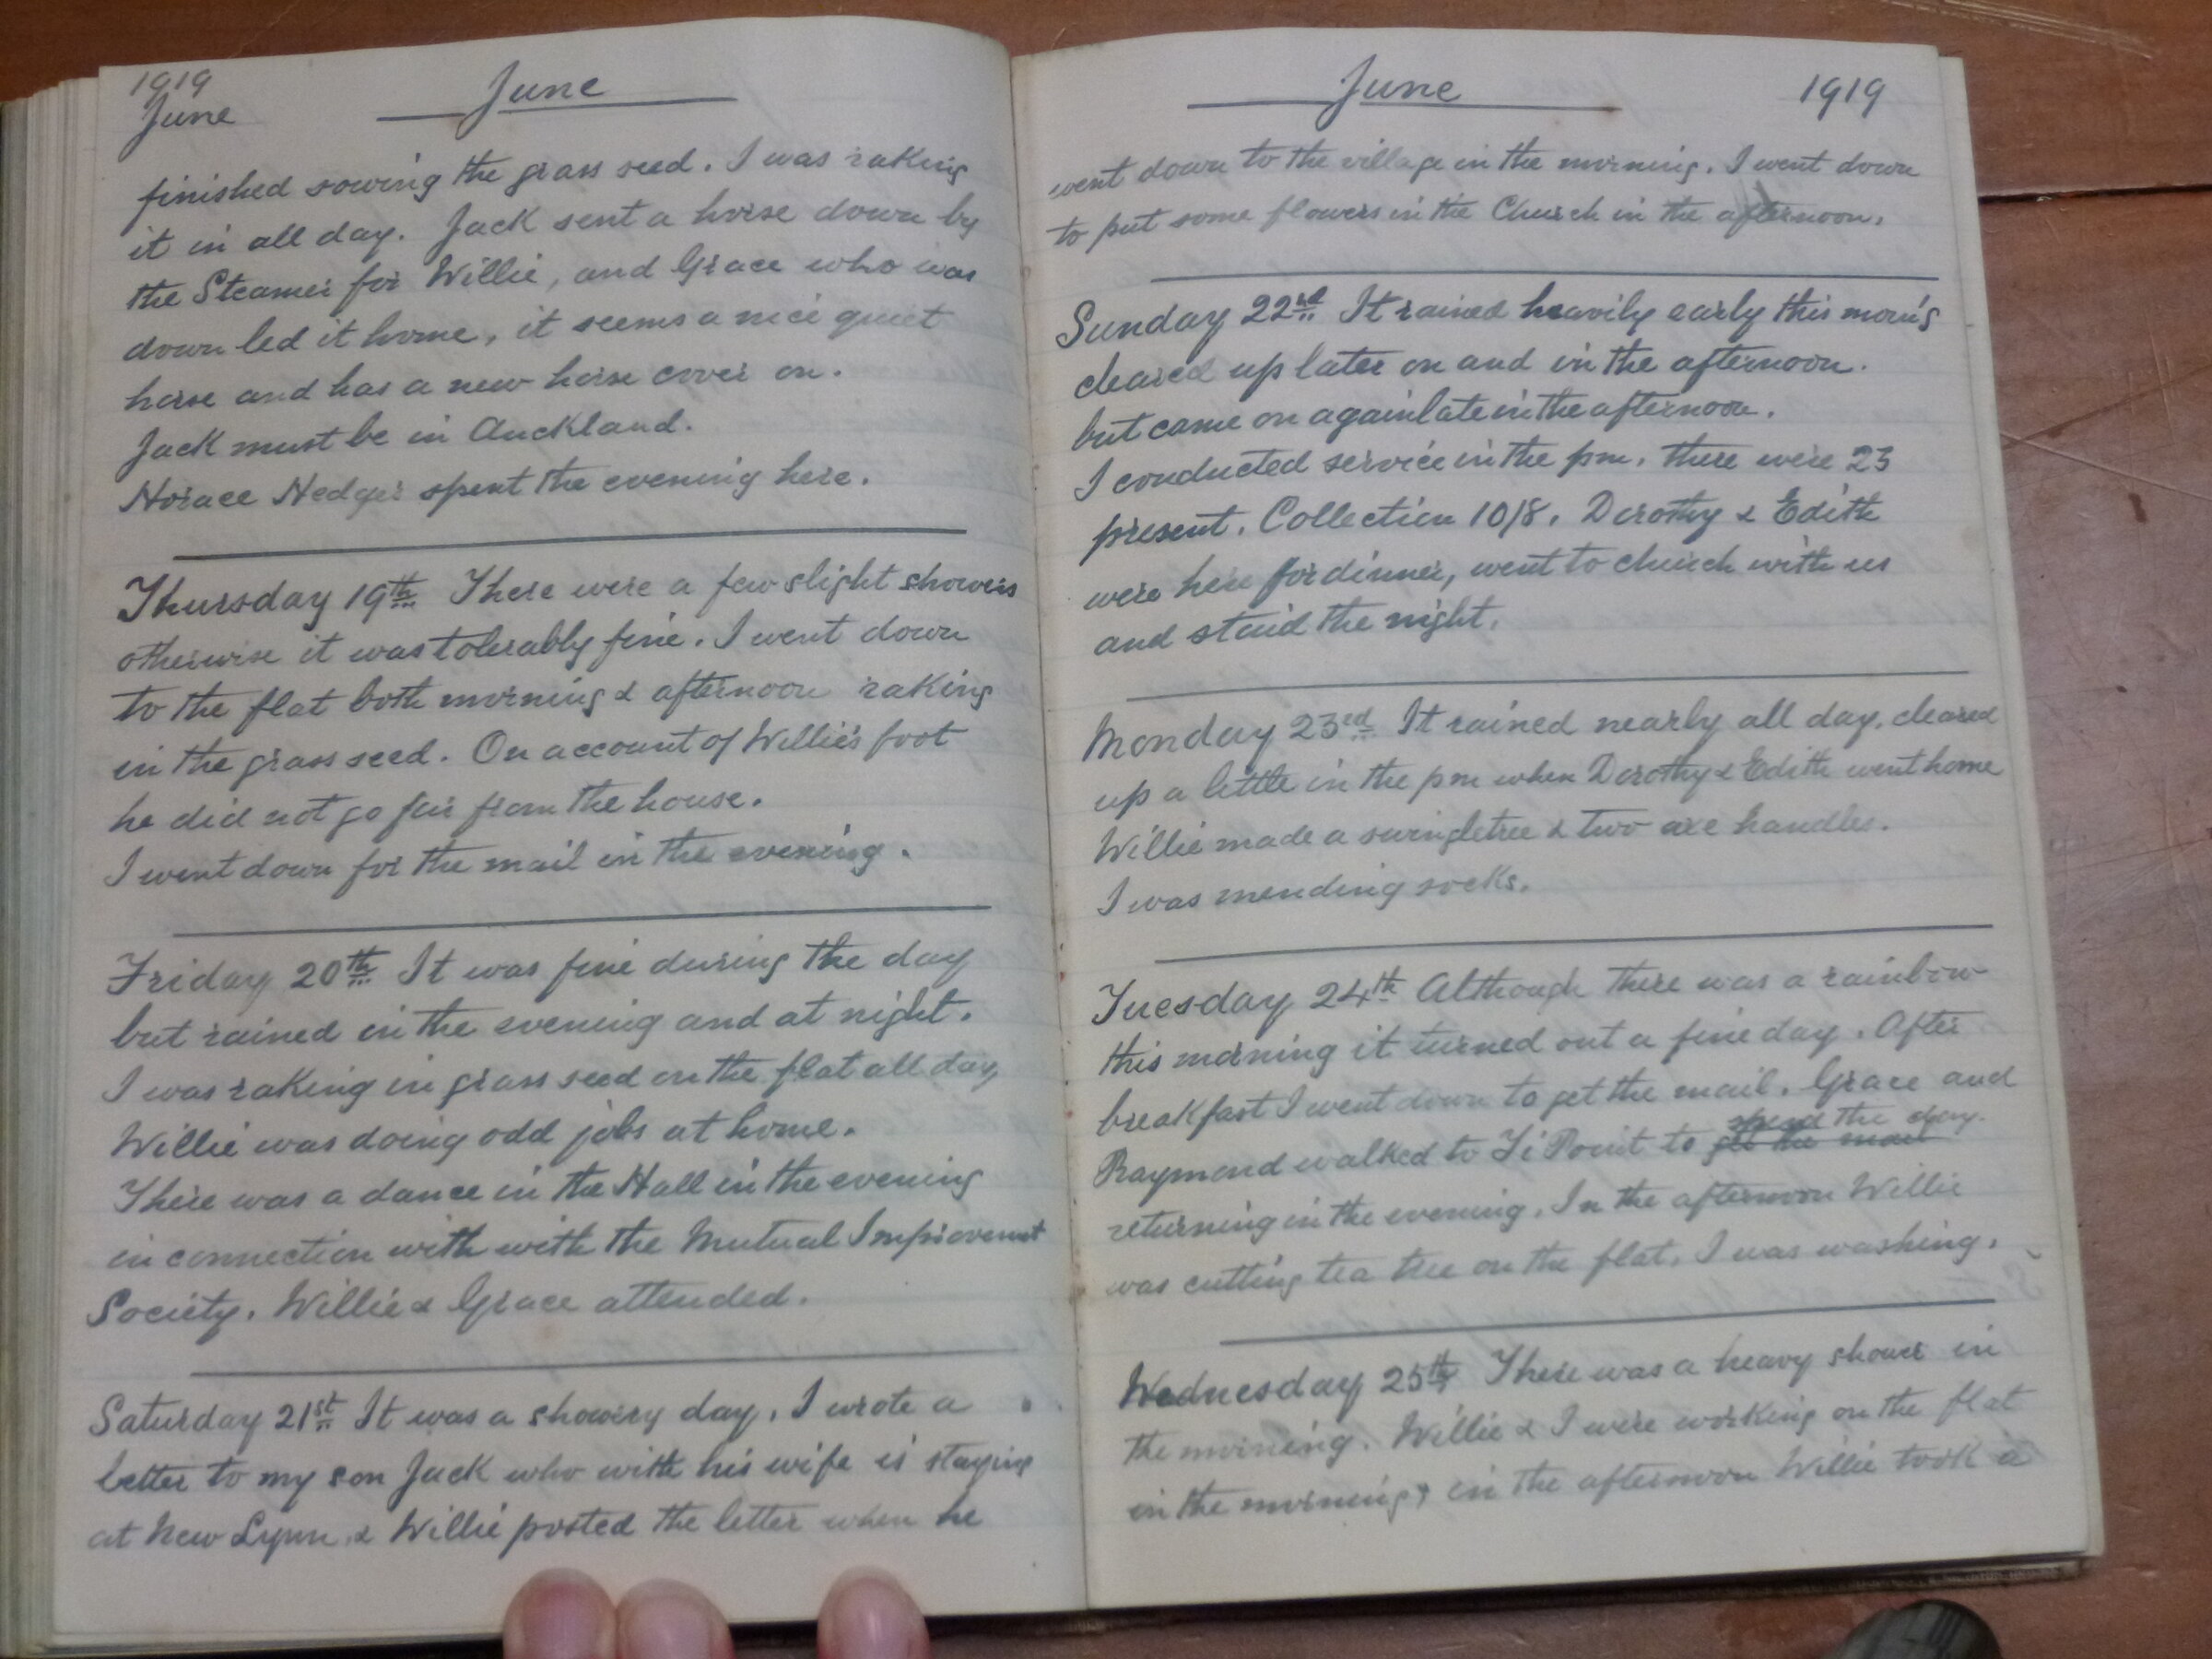 1919
June
June
finished sowing the grass seed. I was raking
it in all day. Jack sent a horse down by
the Steamer for Willie, and Grace who was
down led it home, it seems a nice quiet
horse and has a new horse cover on.
Jack must be in Auckland.
Horace Hedges spent the evening here.
Thursday 19th There were a few slight showers
otherwise it was tolerably fine. I went down
to the flat both morning & afternoon raking
in the grass seed. On account of Willie's foot
he did not go far from the house.
I went down for the mail in the evening.
Friday 20th It was fine during the day
but rained in the evening and at night.
I was raking in grass seed on the flat all day,
Willie was doing odd jobs at home.
There was a dance in the Hall in the evening
in connection with with the Mutual Improvement
Society. Willie & Grace attended.
Saturday 21st It was a showery day. I wrote a
letter to my son Jack who with his wife is staying
at New Lynn, & Willie posted the letter when he
June 1919
went down to the village in the morning. I went down
to put some flowers in the Church in the afternoon.
Sunday 22nd It rained heavily early this morn'g
cleared up later on and in the afternoon.
but came on again late in the afternoon.
I conducted service in the pm. there were 23
present. Collection 10/8. Dorothy & Edith
were here for dinner, went to church with us
and staid the night.
Monday 23rd It rained nearly all day, cleared
up a little in the pm when Dorothy & Edith went home
Willie made a swingletree & two axe handles.
I was mending socks.
Tuesday 24th Although there was a rainbow
this morning it turned out a fine day. After
breakfast I went down to get the mail. Grace and
spend the day.
Raymond walked to Ti Point to get the mail
returning in the evening. In the afternoon Willie
was cutting tea tree on the flat, I was washing.
Wednesday 25th There was a heavy shower in
the morning. Willie & I were working on the flat
in the morning, in the afternoon Willie took a